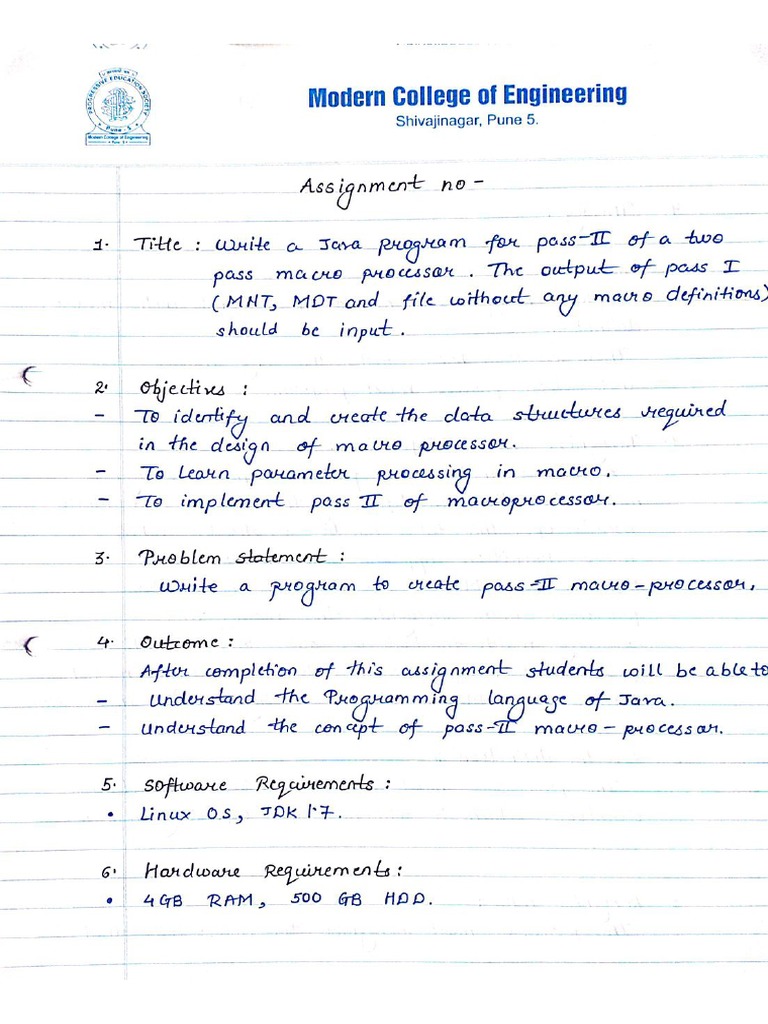 PROGRESSIVE EDUCATION SOCIETY
Pune - 5
Modern College of Engineering
Pune 5.
Modern College of Engineering
Shivajinagar, Pune 5.
Assignment no -
1. Title : Write a Java program for pass-II of a two
pass macro processor. The output of pass I
(MNT, MDT and file without any macro definitions)
should be input.
2. Objectives :
- To identify and create the data structures required
in the design of macro processor.
- To Learn parameter processing in macro.
- To implement pass II of macroprocessor.
3. Problem statement :
Write a program to create pass-II macro-processor.
4. Outcome :
After completion of this assignment students will be able to
- Understand the Programming language of Java.
- Understand the concept of pass-II macro-processor.
5. Software Requirements :
• Linux OS, JDK 1.7.
6. Hardware Requirements :
• 4GB RAM, 500 GB HDD.